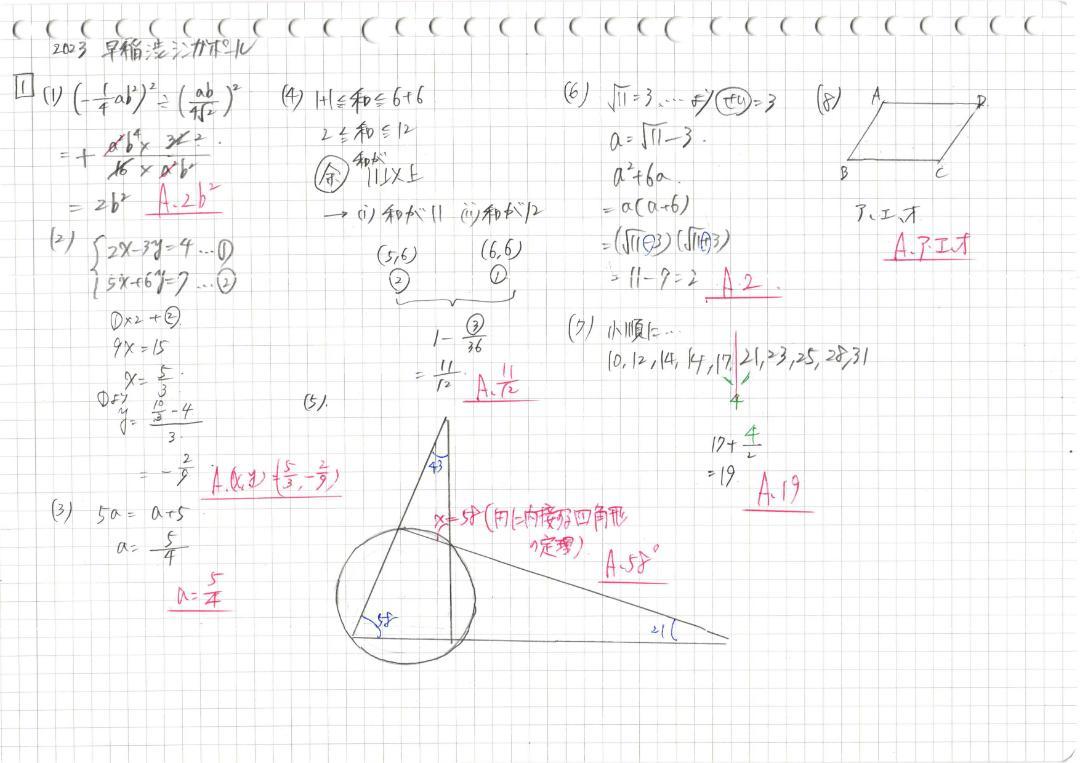 2023 早稲渋シンガポール
1
(1) (-1/4 ab²)² ÷ (ab/4√2)²
= + a²b⁴ × 32 2 / 16 × a²b²
= 2b² A. 2b²
(2) { 2x-3y=4 …①
5x+6y=7 …②
①×2+②
9x=15
x=5/3
①より
y= (10/3 -4)/3
= -2/9 A.(x,y)=(5/3, -2/9)
(3) 5a = a+5
a= 5/4
a=5/4
(4) 1+1≦和≦6+6
2≦和≦12
余 和が11以上
→ (i) 和が11 (ii) 和が12
(5,6) (6,6)
② ①
1- ③/36
= 11/12 A. 11/12
(5)
43
x=58 (円に内接する四角形
の定理)
A. 58°
58
21
(6) √11=3.… より 整数=3
a=√11-3.
a²+6a
=a(a+6)
=(√11-3)(√11+3)
=11-9=2 A. 2
(7) 小順に…
10,12,14,14,17,21,23,25,28,31
4
17+ 4/2
=19 A. 19
(8) A D
B C
ア、エ、オ
A. ア.エ.オ